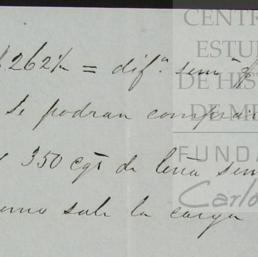 262 1/2 = dif.ª sem.ª
Se podran comprar
350 cgs de leña sem
como sale la carga
CENTR
ESTU
DE HIS
DE M
FUNDA
Carlo